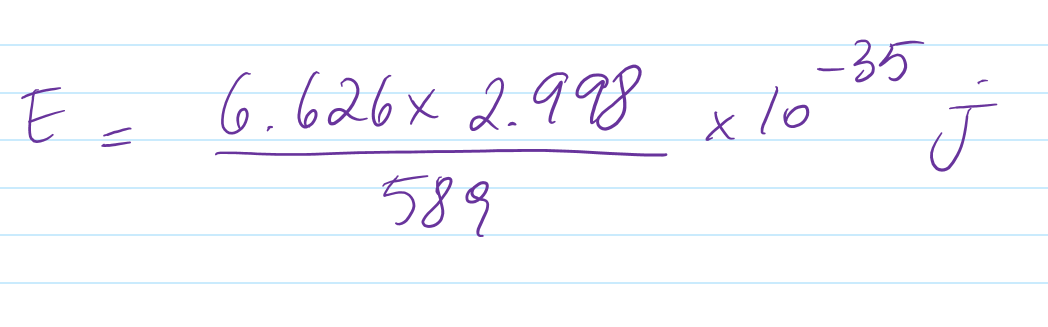 E = 6.626 × 2.998 / 589 × 10^-35 j